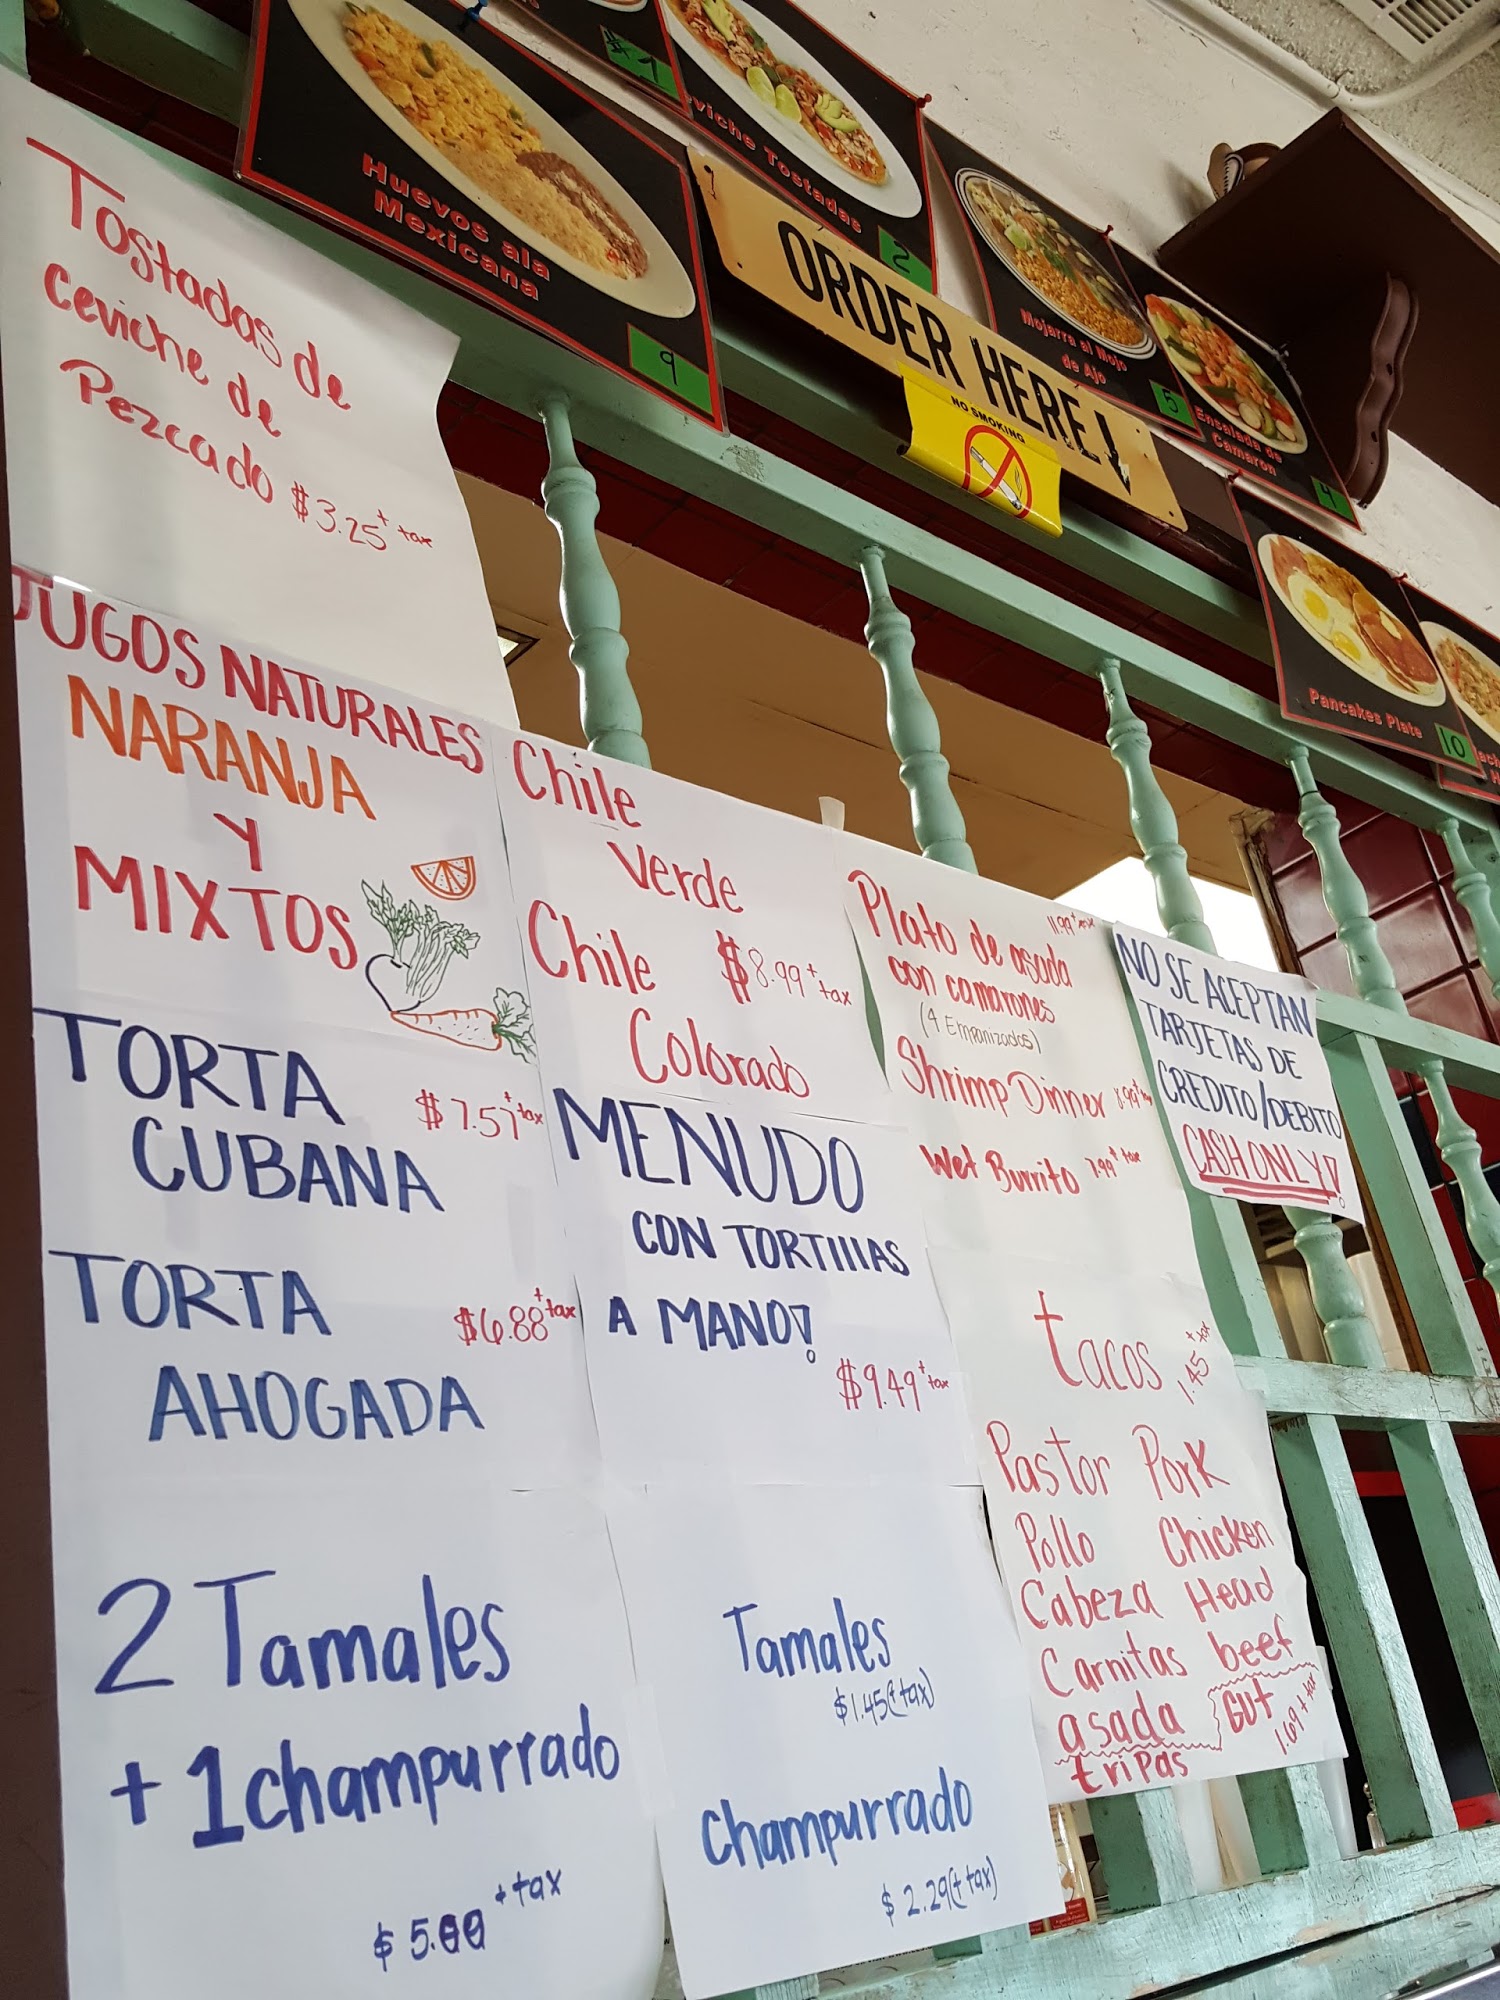 Huevos ala
Mexicana
9
$1
viche Tostadas
2
ORDER HERE
NO SMOKING
Mojarra al Mojo
de Ajo
5
Ensalada de
Camaron
4
Pancakes Plate
10
Tostadas de
Ceviche de
Pezcado $3.25 + tax
JUGOS NATURALES
NARANJA
Y
MIXTOS
TORTA
CUBANA
$7.57 + tax
TORTA
AHOGADA
$6.88 + tax
2 Tamales
+ 1 champurrado
$5.00 + tax
Chile
Verde
Chile
Colorado
$8.99 + tax
MENUDO
CON TORTIllAS
A MANO!
$9.49 + tax
Tamales
$1.45 (+ tax)
champurrado
$2.29 (+ tax)
Plato de asada 11.99 + tax
con camarones
(4 Empanizados)
Shrimp Dinner 8.99 + tax
Wet Burrito 7.99 + tax
tacos 1.45 + tax
Pastor Pork
Pollo Chicken
Cabeza Head
Carnitas beef
asada
tripas Gut 1.69 + tax
NO SE ACEPTAN
TARJETAS DE
CREDITO/DEBITO
CASH ONLY!